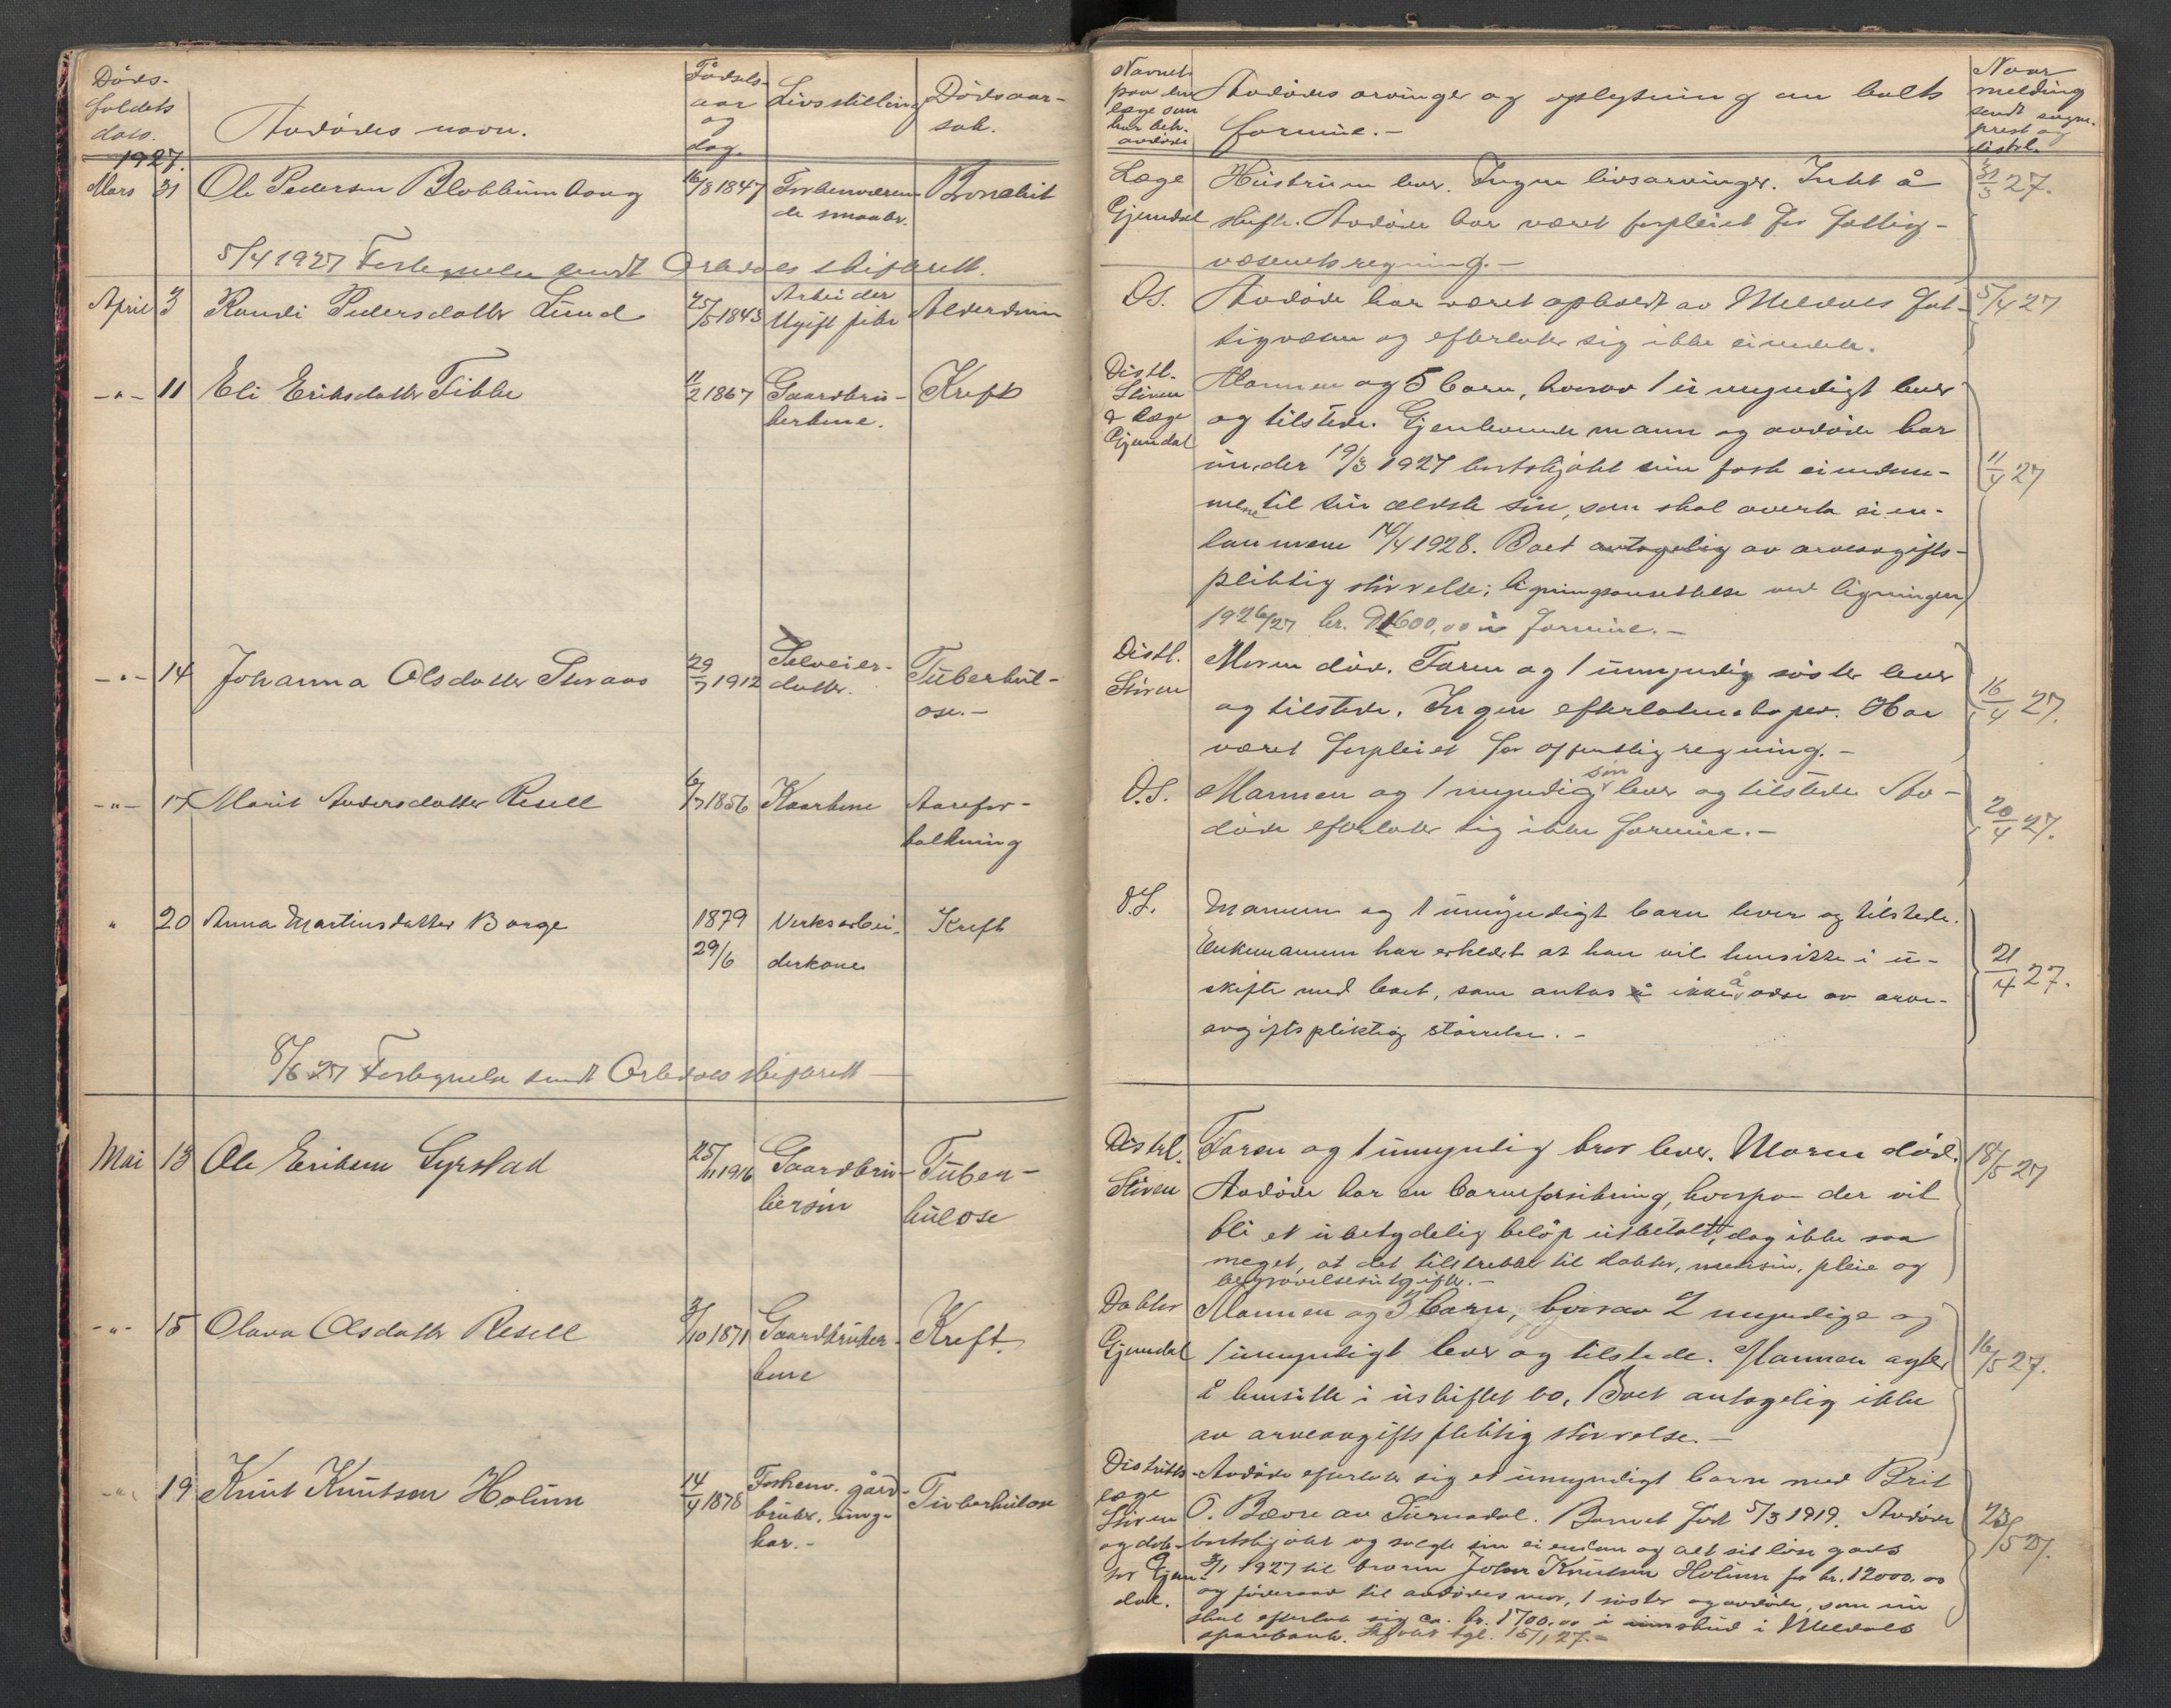 Døds-
faldets
dato.
Avdødes navn.
Fødsels-
aar
og
dag.
Livsstilling
Dødsaar-
sak.
1927.
Mars 31 Ole Pedersen Blokkumhaug
16/8 1847
Forhenværen-
de smaabr.
Bronchit
5/4 1927 Fortegnelse sendt Orkedals skifterett.
April 3 Randi Pedersdatter Lund
25/5 1843
Arbeider
Ugift pike
Alderdom
-"- 11 Eli Eriksdatter Fikke
11/2 1867
Gaardbru-
kerkone.
Kreft
-"- 14 Johanna Olsdatter
29/7 1912
Selveier-
datter.
Tuberkul-
ose.-
-"- 17 Marit Andersdatter Resell
6/7 1856
Kaarkone
Aarefor-
kalkning
" 20 Anna Martinsdatter Borge
1879
29/6
Verksarbei-
derkone
Kreft
8/6 27 Fortegnelse sendt Orkedals skifterett
Mai 13 Ole Eriksen Syrstad
25/11 1916
Gaardbru-
kersøn
Tuber-
kulose
-"- 15 Olava Olsdatter Resell
3/10 1871
Gaardbruker-
kone
Kreft.
-"- 19 Knut Knutsen Holum
14/4 1878
Forhenv. gård-
bruker, ung-
kar.-
Tuberkulose
Navnet
paa den
læge som
har beh.
avdøde
Avdødes arvinger og oplysning om boets
formue.-
Naar
melding
sendt sogne-
prest og
Læge
Gjendal
Hustruen lever. Ingen livsarvinger. Intet å
skifte. Avdøde har været forpleiet for fattig-
væsenets regning.-
31/3 27.
D.S.
Avdøde har været opholdt av Meldals fat-
tigvæsen og efterlater sig ikke eiendele.
5/4 27
Distl.
Stören
& læge
Gjendal
Mannen og 5 barn, hvorav 1 er umyndigt lever
og tilstede. Gjenlevende mann og avdøde har
under 19/3 1927 bortskjøtet sin faste eiendom-
mene til sin ældste søn, som skal overta eien-
dommene 14/4 1928. Boet antagelig av arveavgifts-
pliktig størrelse; ligningsansettelse ved ligningen
1926/27 kr. 600,00 i formue.-
11/4 27
Distl.
Stören
Moren død. Faren og 1 umyndig søster lever
og tilstede. Ingen efterlatenskaper. Har
været forpleiet for offentlig regning.-
16/4 27.
D.S.
Mannen og 1 myndig søn lever og tilstede Av-
døde efterlater sig ikke formue.-
20/4 27.
D.S.
Mannen og 1 umyndigt barn lever og tilstede.
Enkemannen har erklært at han vil hensitte i u-
skifte med boet, som antas ikke å være av arve-
avgiftspliktig størrelse.-
21/4 27.
Distrl.
Stören
Faren og 1 umyndig bror lever. Moren død.
Avdøde har en barneforsikring, hvorpaa der vil
bli et ubetydelig beløp utbetalt, dog ikke saa
meget, at det tilstrekker til dokter, medisin, pleie og
begravelsesutgifter.-
18/5 27
Dokter
Gjendal
Mannen og 3 barn, hvorav 2 myndige og
1 umyndigt lever og tilstede. Mannen agter
å hensitte i uskiftet bo. Boet antagelig ikke
av arveavgiftspliktig størrelse.-
16/5 27.
Distrikts-
læge
Stören
og dok-
tor Gjen-
dal.
Avdøde efterlater sig et umyndigt barn med Brit
O. Bævre av Surnadal. Barnet født 5/3 1919. Avdøde
bortskjøtet og solgte sin eiendom og alt sit løse gods
1927 til broren Johan Knutsen Holum for kr. 12000.00
og føderaad til avdødes mor, 1 søster og avdøde, som nu
skal efterlate sig ca. kr. 1700.00 i innskud i Meldals
sparebank. Skjøtet tgl. 15/1 27.-
23/5 27.